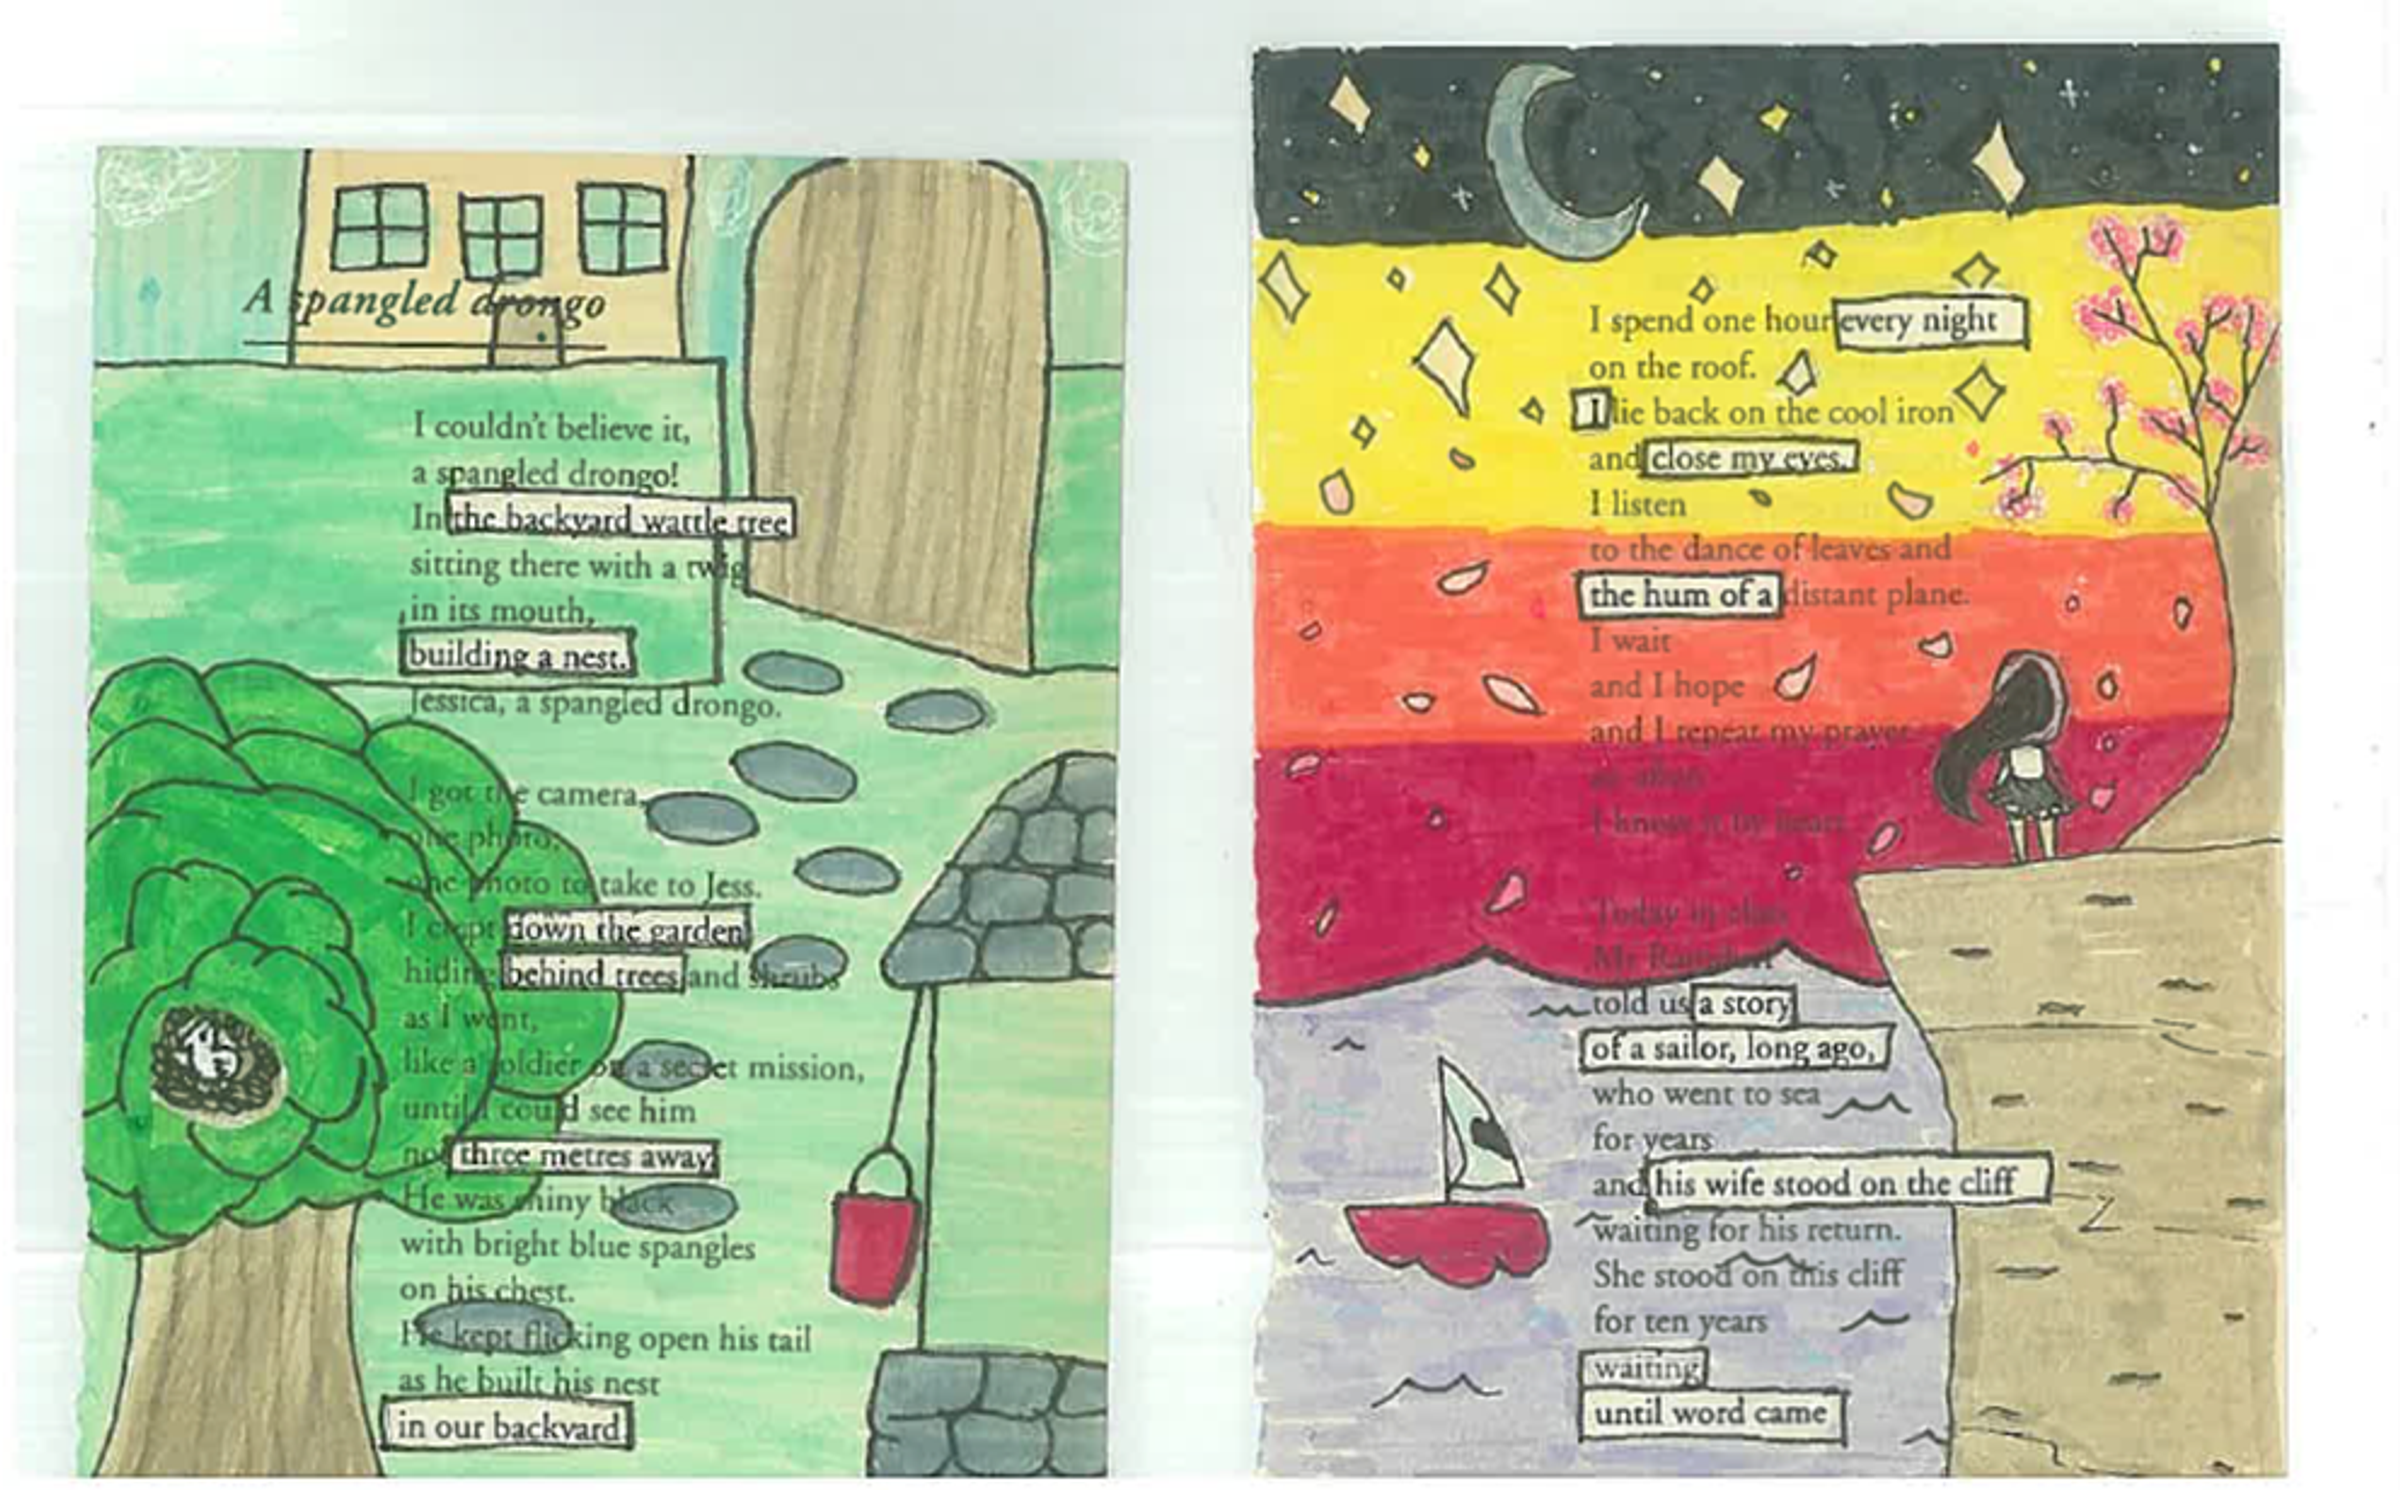 A spangled drongo
I couldn't believe it,
a spangled drongo!
In the backyard wattle tree
sitting there with a twig
in its mouth,
building a nest.
Jessica, a spangled drongo.
I got the camera,
one photo,
one photo to take to Jess.
I crept down the garden
hiding behind trees and shrubs
as I went,
like a soldier on a secret mission,
until I could see him
not three metres away.
He was shiny black
with bright blue spangles
on his chest.
He kept flicking open his tail
as he built his nest
in our backyard
I spend one hour every night
on the roof.
I lie back on the cool iron
and close my eyes.
I listen
to the dance of leaves and
the hum of a distant plane.
I wait
and I hope
and I repeat my prayer
so often
I know it by heart.
Today in class
Mr
told us a story
of a sailor, long ago,
who went to sea
for years
and his wife stood on the cliff
waiting for his return.
She stood on this cliff
for ten years
waiting
until word came